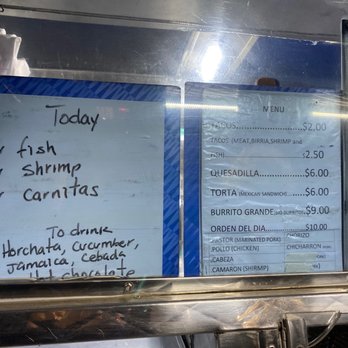 Today
fish
Shrimp
Carnitas
To drink
Horchata, cucumber,
Jamaica, cebada
Hot chocolate
MENU
TACOS.................$2.00
TACOS (MEAT,BIRRIA,SHRIMP and
FISH)..................$2.50
QUESADILLA.......$6.00
TORTA (MEXICAN SANDWICH)......$6.00
BURRITO GRANDE $9.00
ORDEN DEL DIA.......$10.00
.PASTOR (MARINATED PORK)
CHORIZO
.POLLO (CHICKEN)
CHICHARRON
.CABEZA
CAMARON (SHRIMP)